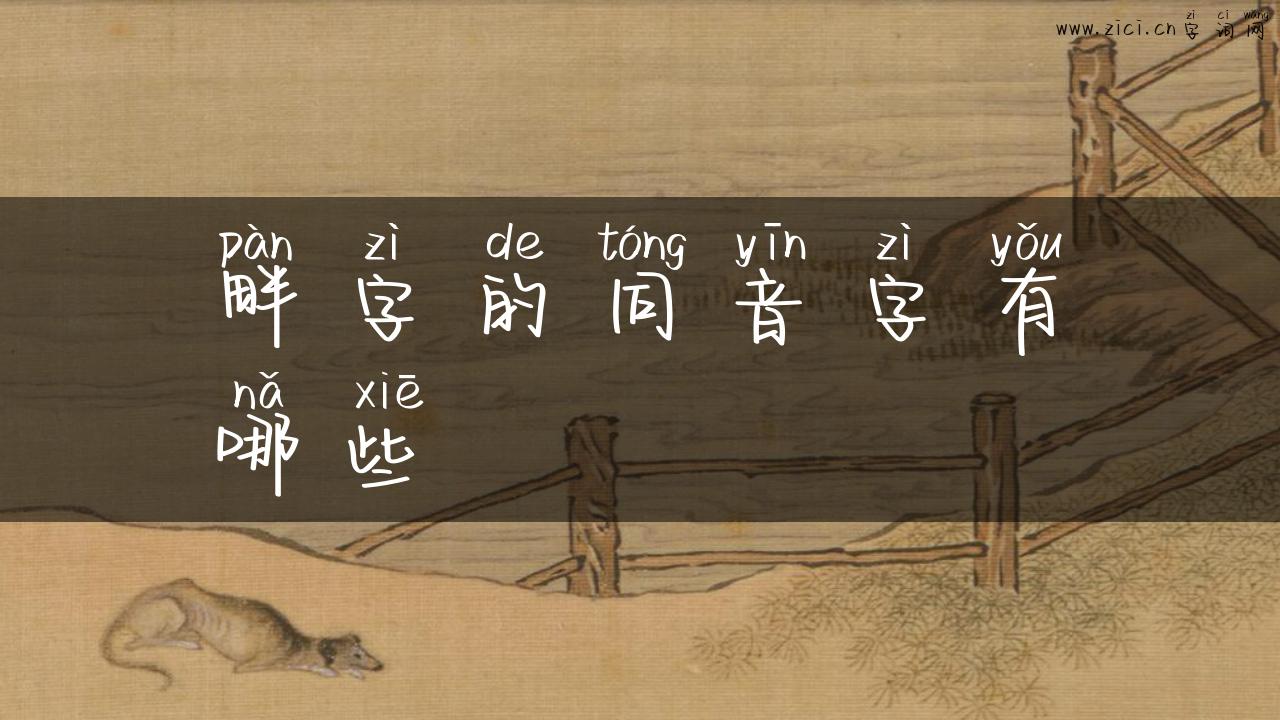 zì cì wǎng
www.zici.cn 字词网
pàn zì de tóng yīn zì yǒu
畔字的同音字有
nǎ xiē
哪些